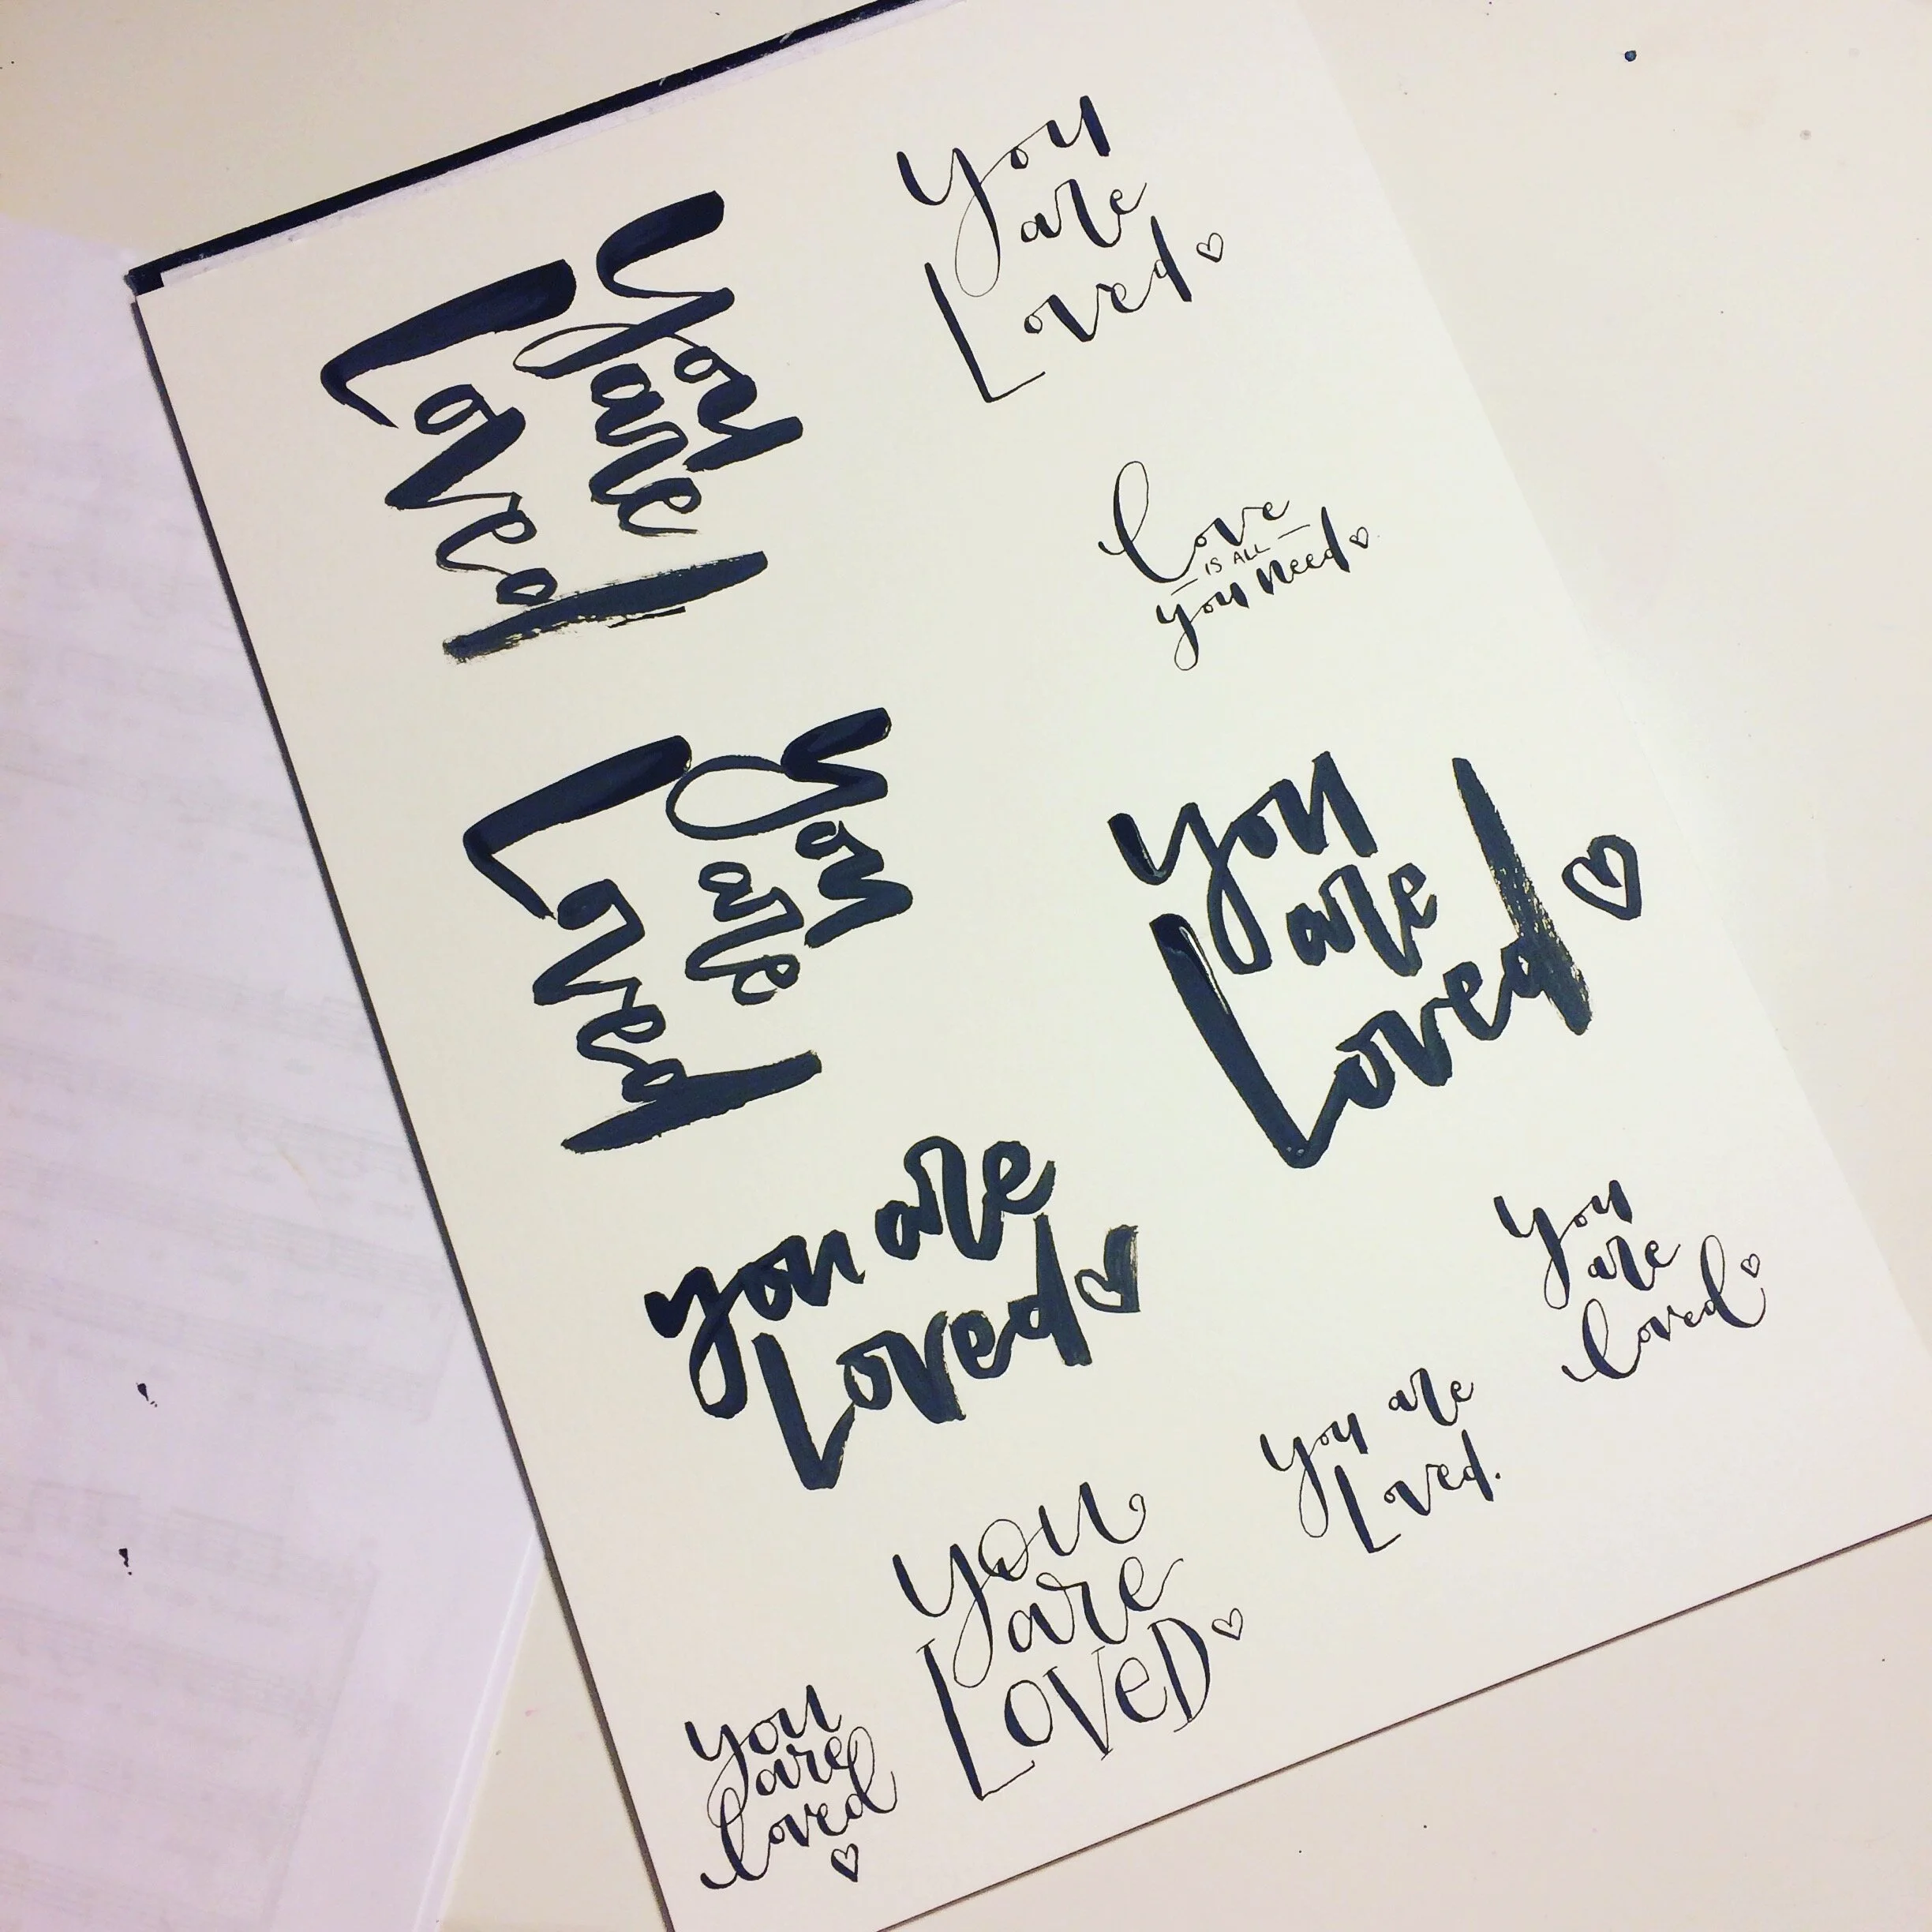 You
are
Loved
You
are
Loved
love
IS ALL
you need
You
are
Loved
you
are
Loved
you are
Loved
You
are
loved
you are
Loved.
you
are
LOVeD
you
are
loved